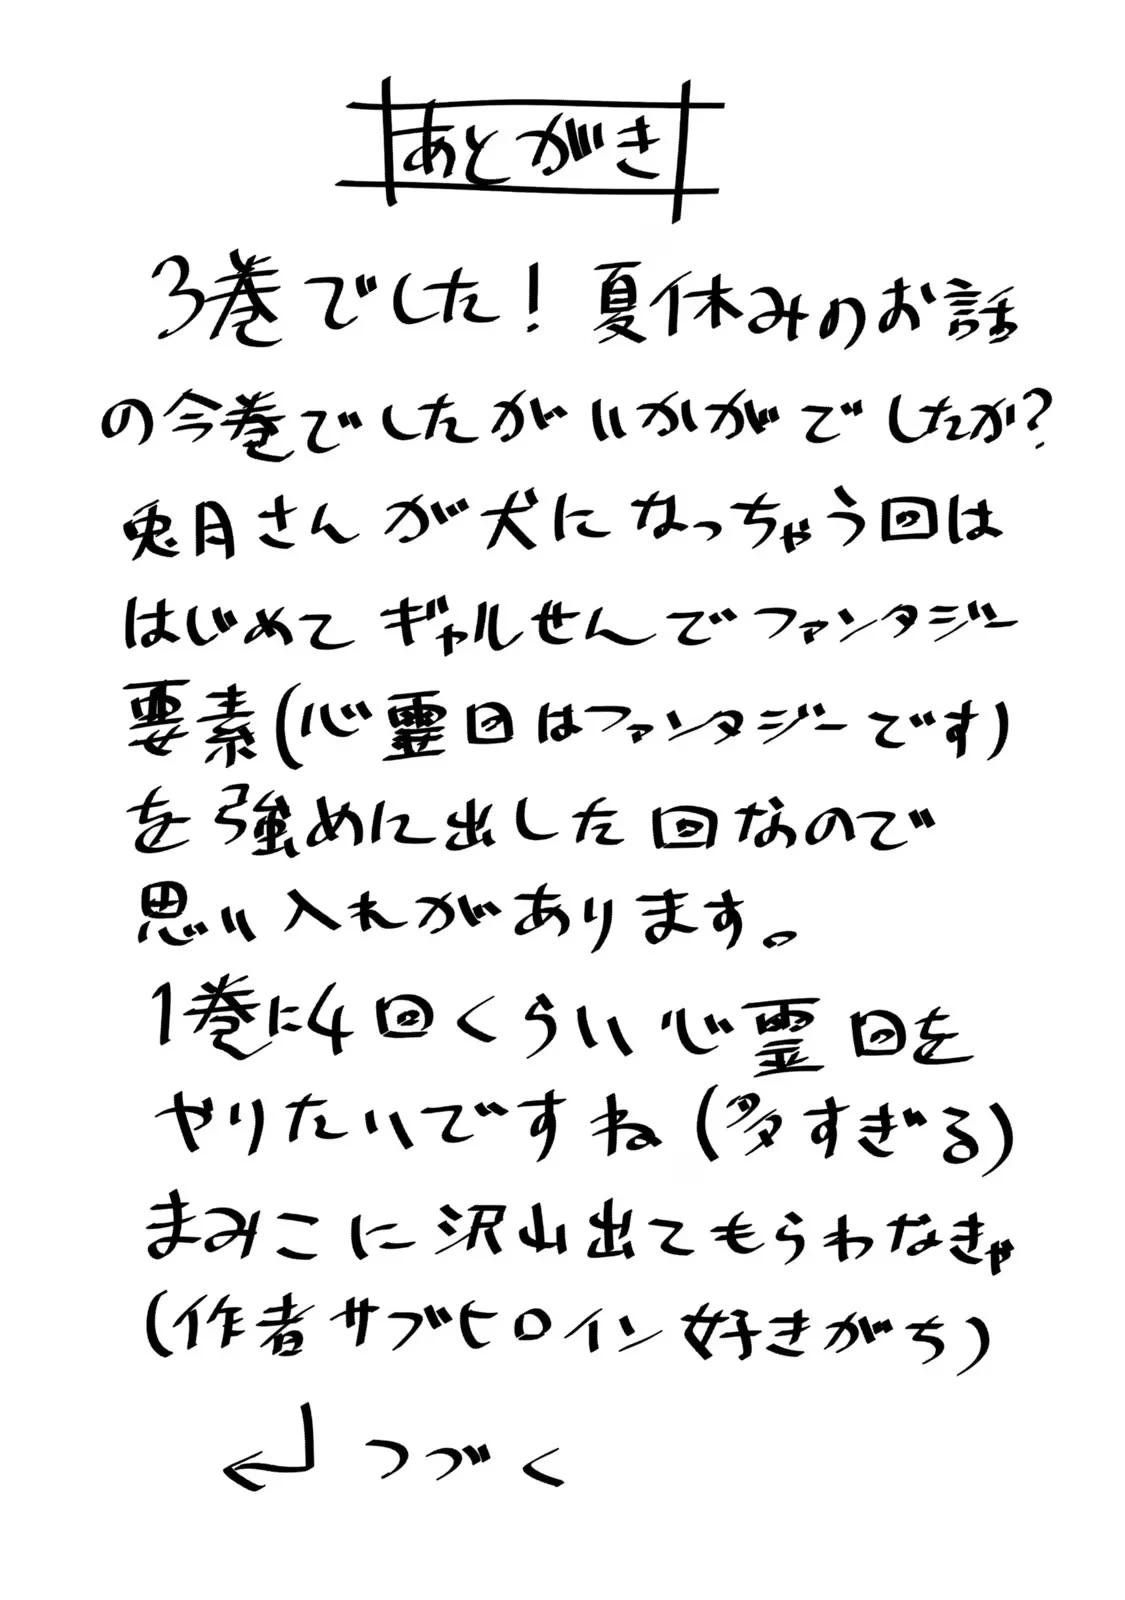 あとがき
3巻でした!夏休みのお話
の今巻でしたがいかがでしたか?
兎月さんが犬になっちゃう回は
はじめてギャルせんでファンタジー
要素(心霊回はファンタジーです)
を強めに出した回なので
思い入れがあります。
1巻に4回くらい心霊回を
やりたいですね(多すぎる)
まみこに沢山出てもらわなきゃ
(作者サブヒロイン好きがち)
↲つづく